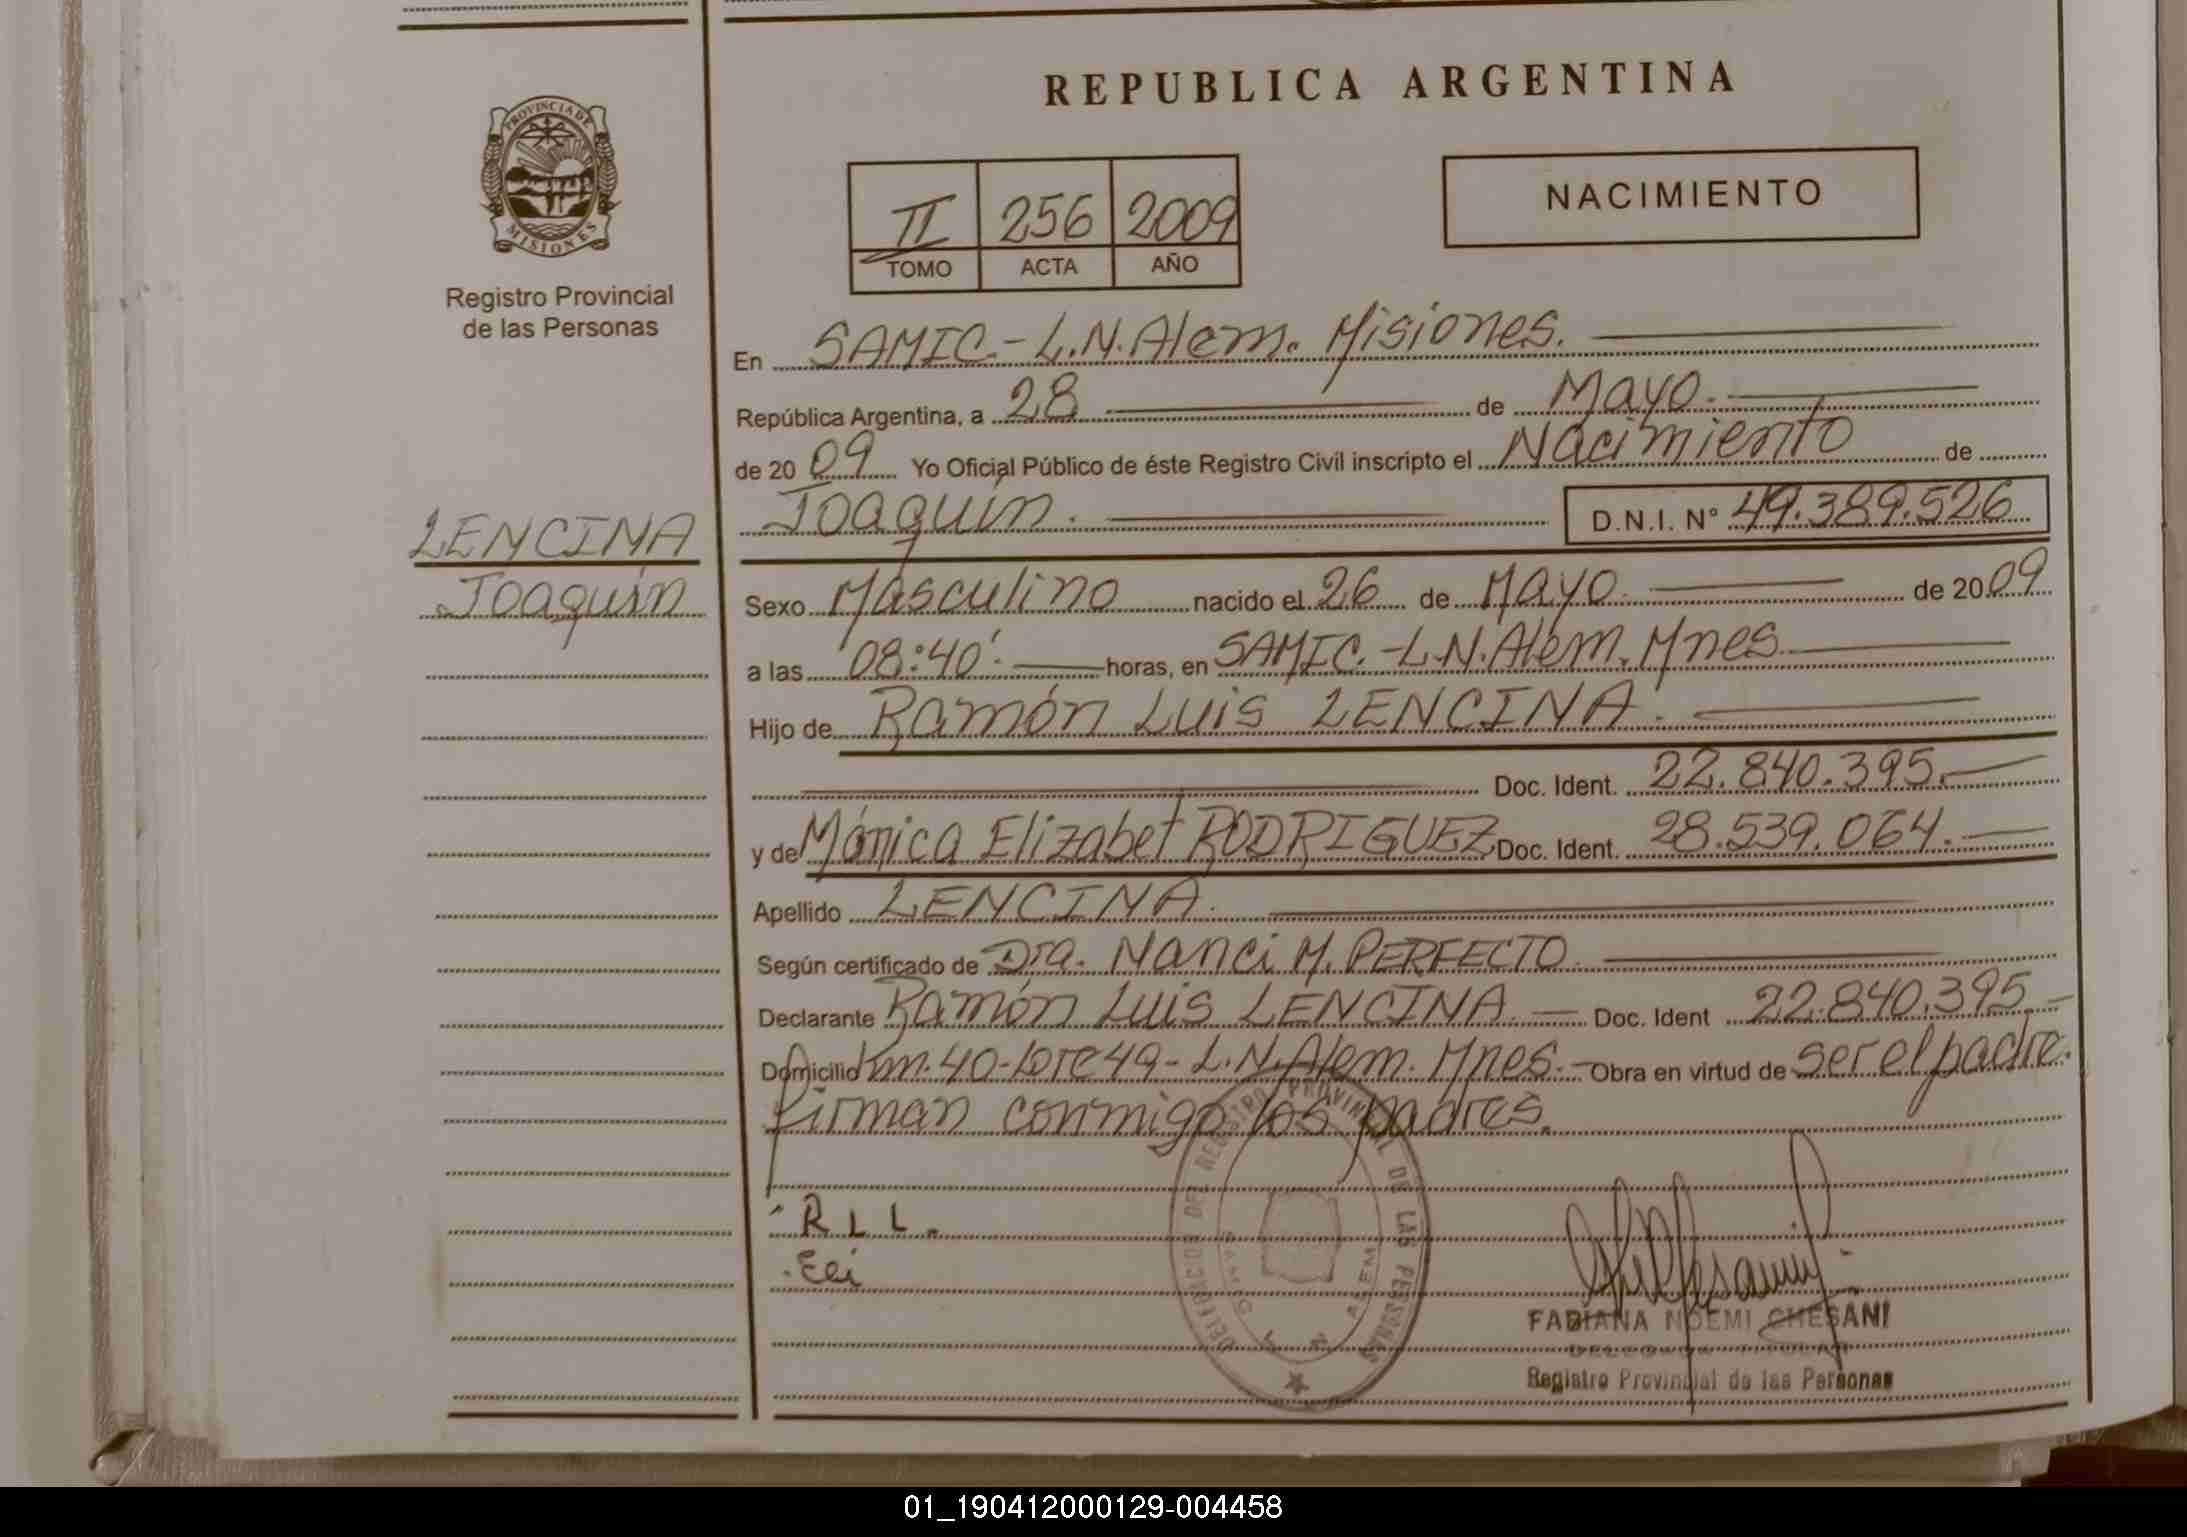 REPUBLICA ARGENTINA
PROVINCIA DE
MISIONES
Registro Provincial
de las Personas
II 256 2009
TOMO ACTA AÑO
NACIMIENTO
En SAMIC.- L.N.Alem. Misiones.
República Argentina, a 28 de Mayo.
de 20 09 Yo Oficial Público de éste Registro Civil inscripto el Nacimiento de
Joaquín. D.N.I. Nº 49.389.526
LENCINA
Joaquín
Sexo Masculino nacido el 26 de Mayo. de 20 09
a las 08:40'. horas, en SAMIC.-L.N.Alem. Mnes.
Hijo de Ramón Luis LENCINA.
Doc. Ident. 22.840.395.
y de Mónica Elizabet RODRIGUEZ Doc. Ident. 28.539.064.
Apellido LENCINA.
Según certificado de Dra. Nanci M. PERFECTO
Declarante Ramón Luis LENCINA. Doc. Ident 22.840.395
Domicilio Km.40-Lote 49-L.N.Alem. Mnes. Obra en virtud de ser el padre.
Firman conmigo los padres.
R L L.
DELEGACION DEL REGISTRO PROVINCIAL DE LAS PERSONAS
SAMIC L N ALEM
FABIANA NOEMI CHESANI
DELEGADA TITULAR
Registro Provincial de las Personas
01_190412000129-004458